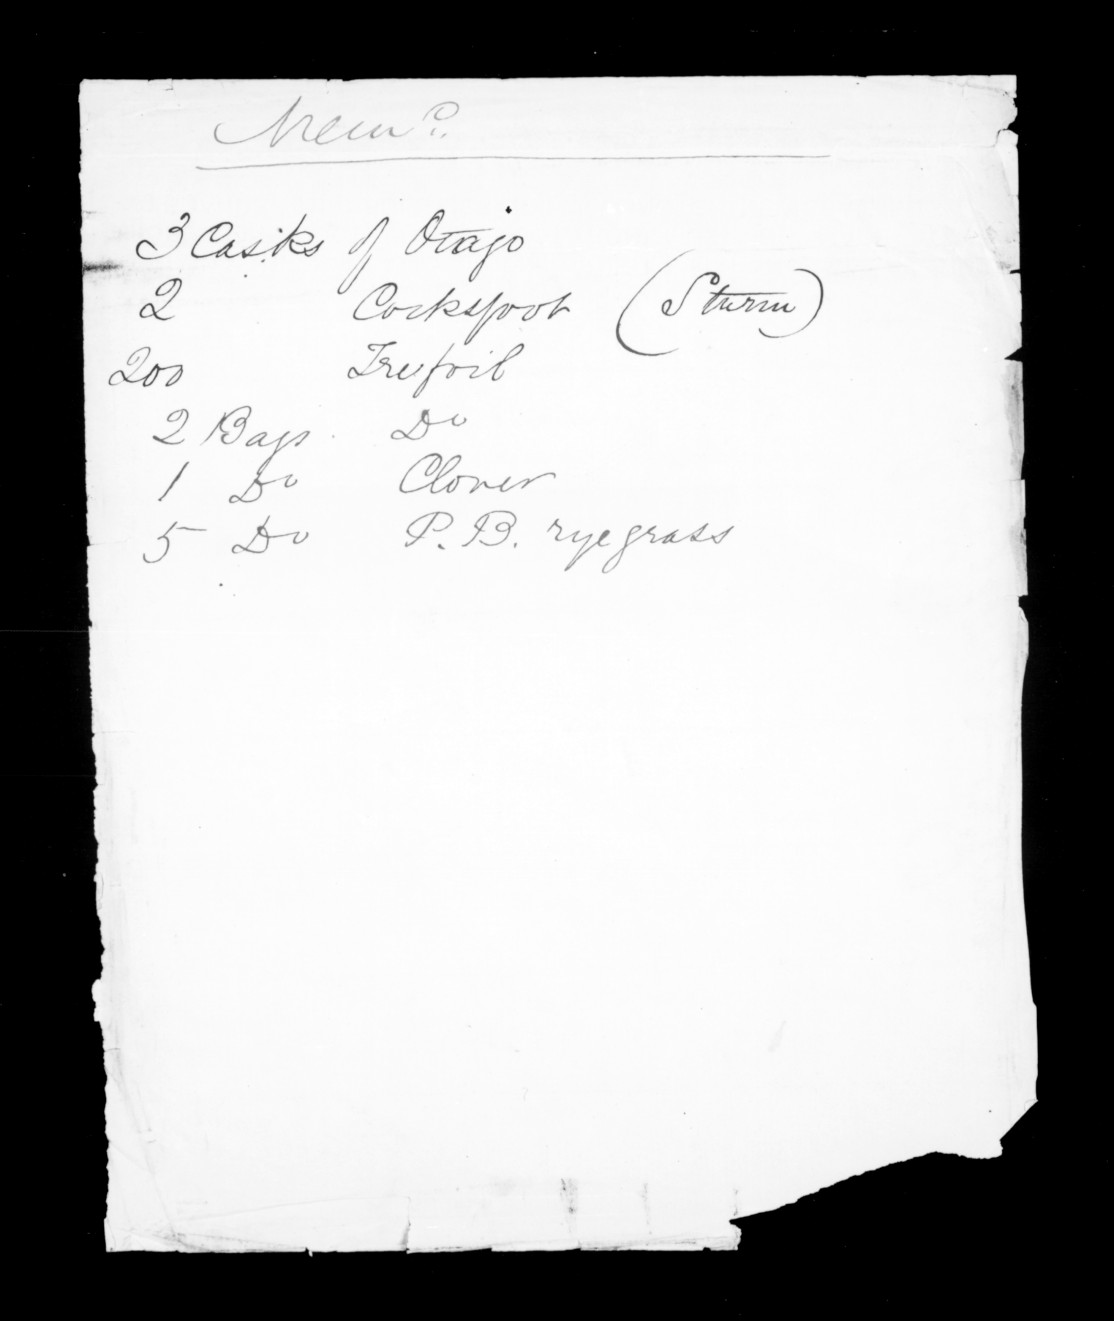 Memo.
3 Casks of Otago
2 Cocksfoot (Sturm)
200 Trefoil
2 Bags Do
1 Do Clover
5 Do P. B. ryegrass